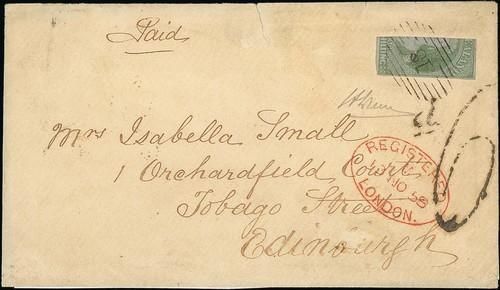 Paid
Mrs Isabella Small
1 Orchardfield Court
Tobago Street
Edinburgh
REGISTERED
LONDON.